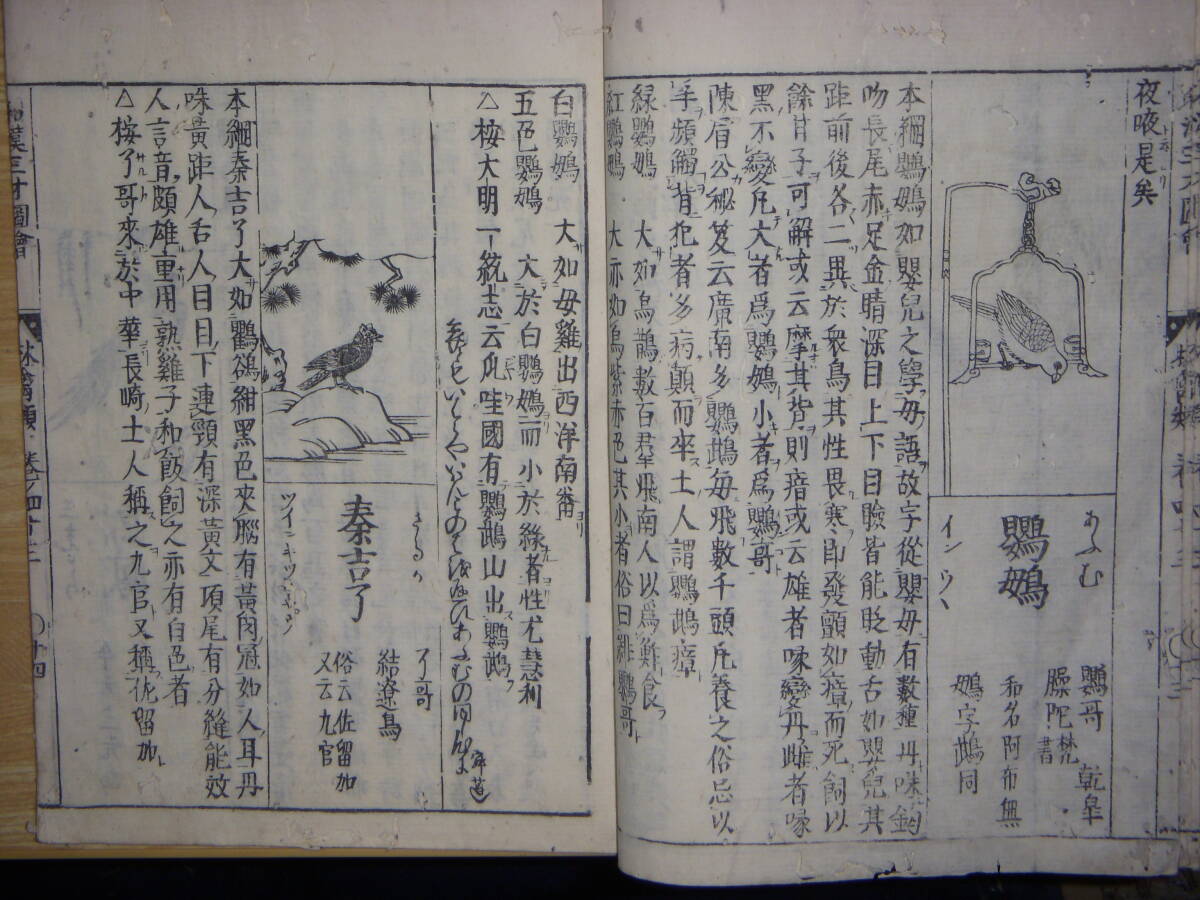 夜啼是矣
あふむ
鸚䳇
インウヽ
鸚哥 乾皐
臊陀 梵書
和名阿布無
䳇字鵡同
本綱鸚䳇如嬰兒之學母語故字從嬰母有數種丹咮鉤
吻長尾赤足金睛深目上下目瞼皆能眨動舌如嬰兒其
距前後各二異於衆鳥其性畏寒即發顫如瘴而死飼以
餘甘子可解或云摩其背則瘖或云雄者喙變丹雌者喙
黑不變凡大者爲鸚䳇小者爲鸚哥
陳眉公秘笈云廣南多鸚鵡毎飛數千頭凡養之俗忌以
手頻觸背犯者多病顛而卒土人謂鸚鵡瘴
緑鸚䳇 大如烏鵲數百羣飛南人以爲鮓食
紅鸚䳇 大亦如烏紫赤色其小者俗曰緋鸚哥
白鸚䳇 大如母雞出西洋南畨
五色鸚䳇 大於白鸚䳇而小於緑者性尤慧利
△按大明一統志云爪哇國有鸚鵡山出鸚鵡
寂蓮
秦吉了
さるか
ツインキツリャ゜ウ
了哥
結遼鳥
俗云佐留加
又云九官
本綱秦吉了大如鸜鵒紺黑色夾腦有黃肉冠如人耳丹
咮黃距人舌人目目下連頸有深黃文項尾有分縫能效
人言音頗雄重用熟雞子和飯飼之亦有白色者
△按了哥來於中華長崎土人稱之九官又稱佐留加
和漢三才圖會 林禽類 卷ノ四十三 〇十四